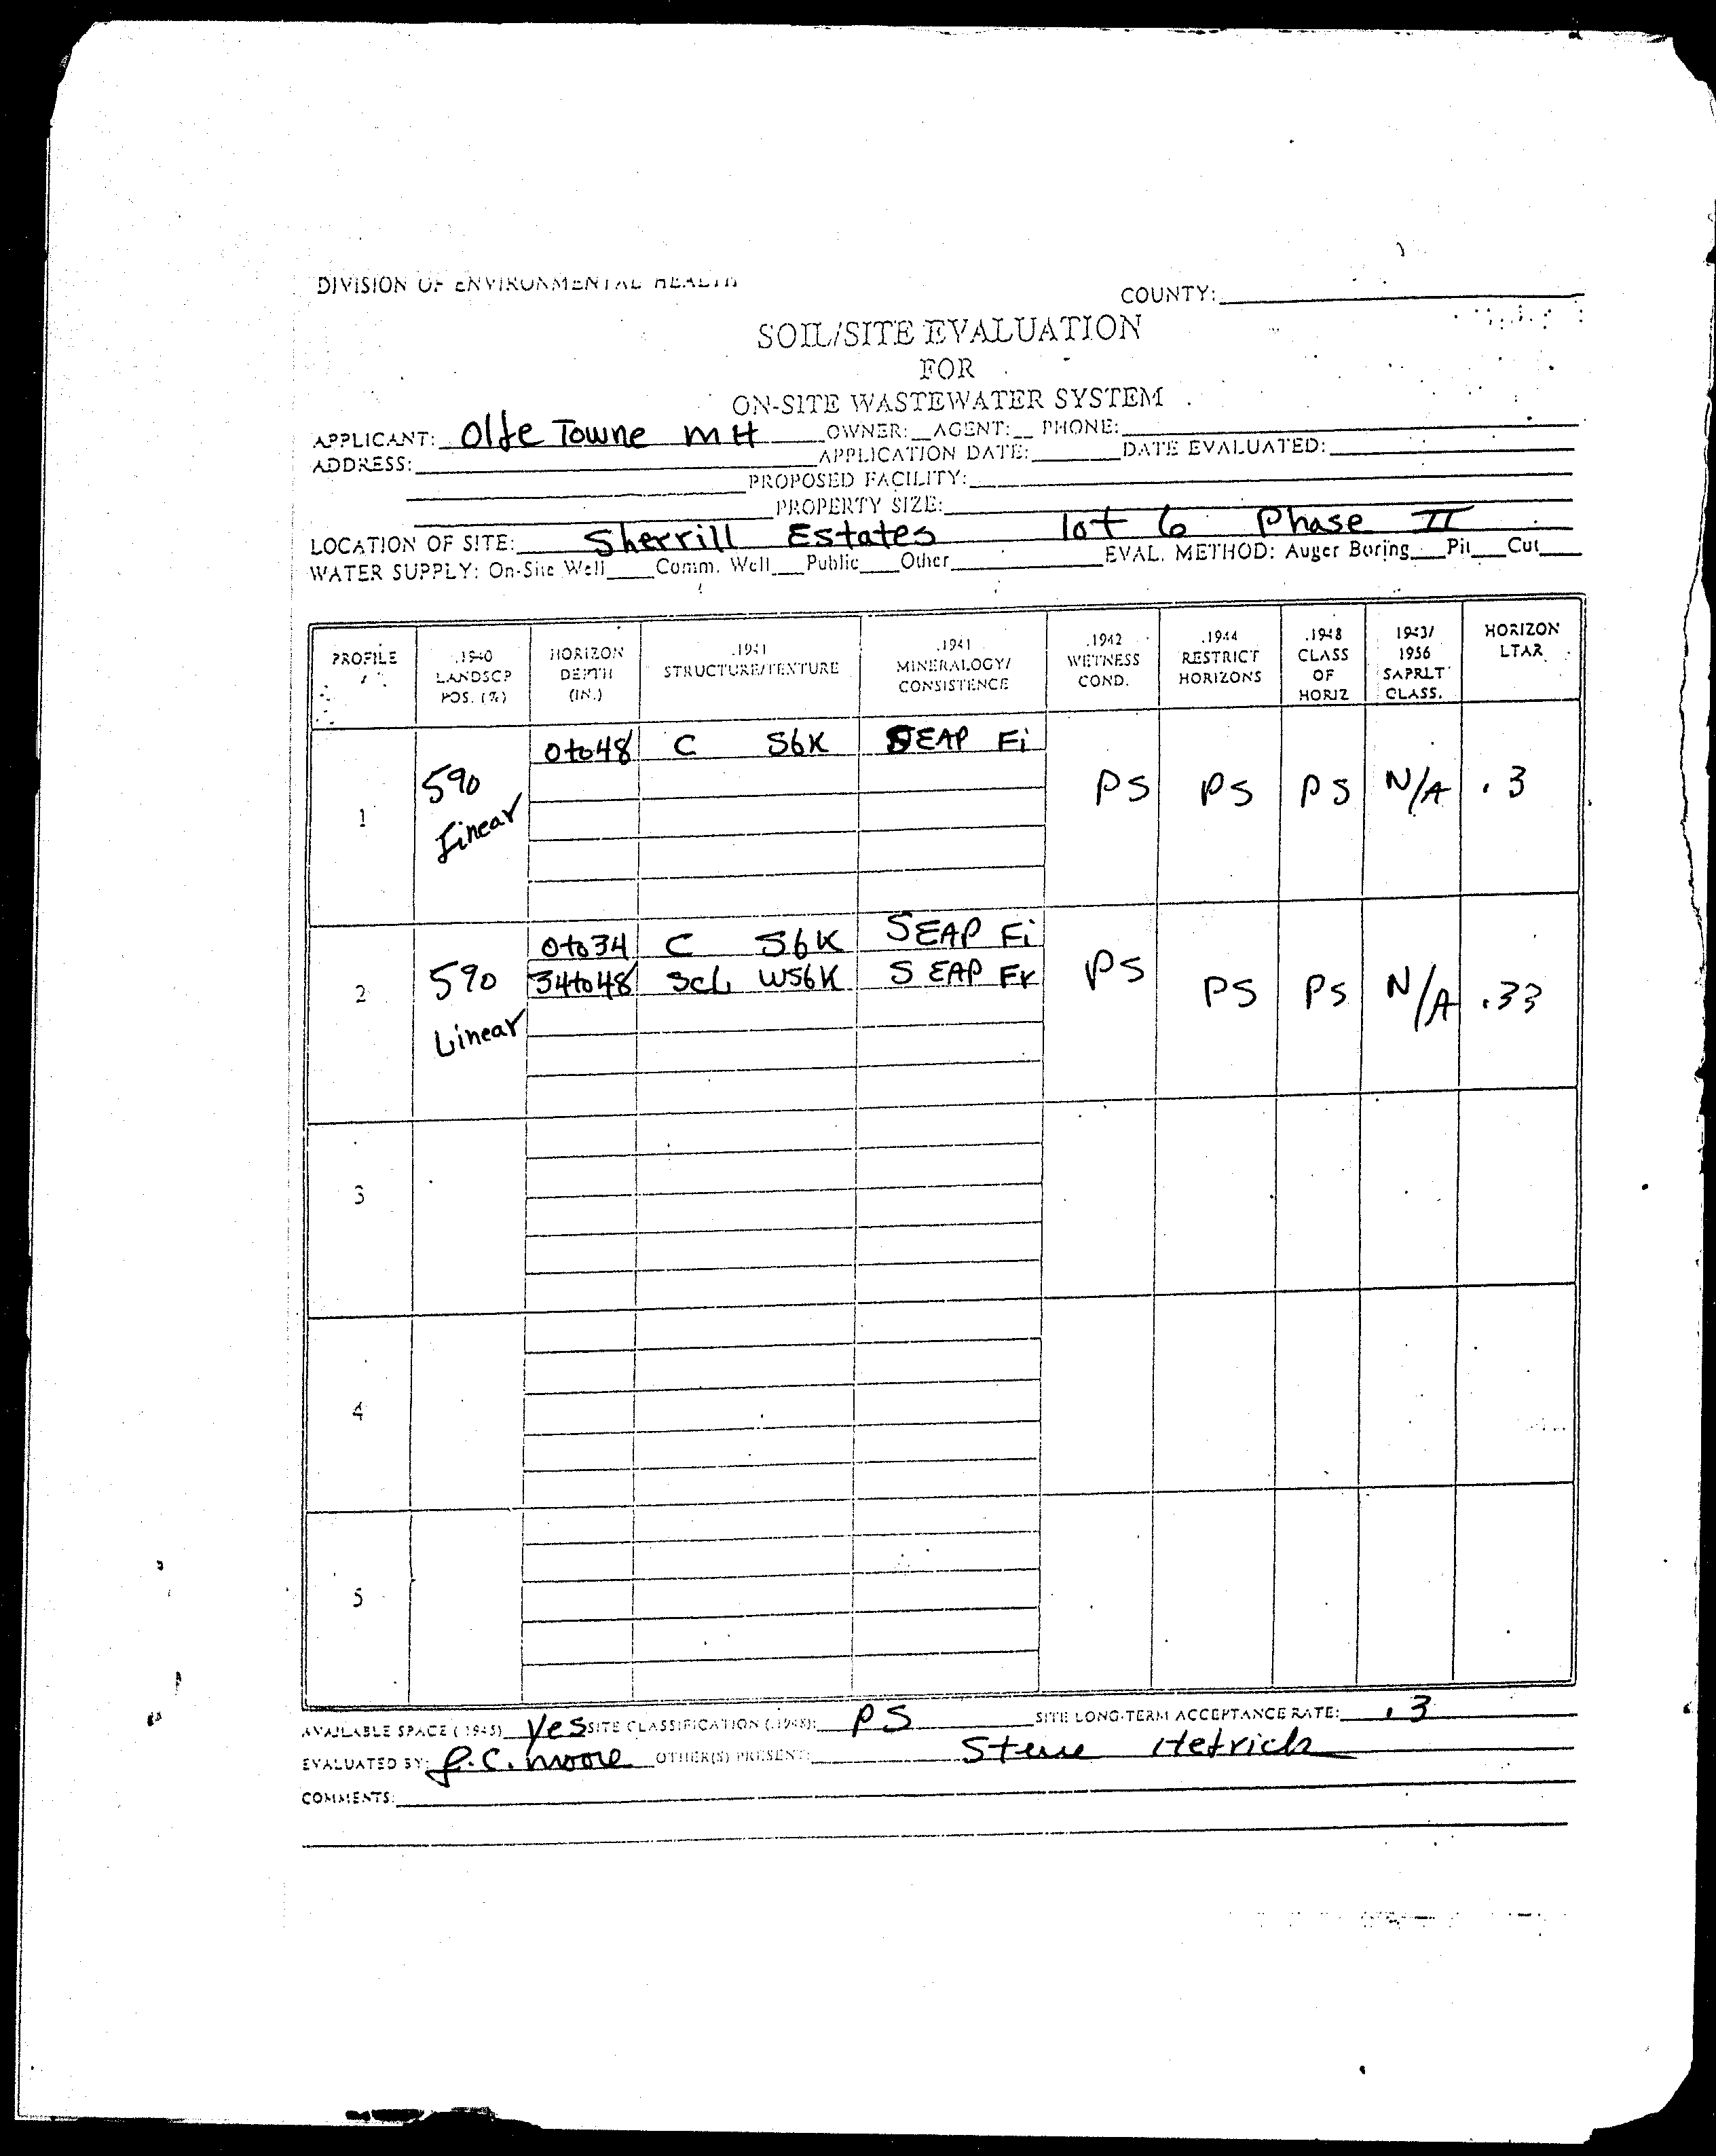 DIVISION OF ENVIRONMENTAL HEALTH
COUNTY:
SOIL/SITE EVALUATION
FOR
ON-SITE WASTEWATER SYSTEM
APPLICANT: Olde Towne MH OWNER: AGENT: PHONE:
ADDRESS: APPLICATION DATE: DATE EVALUATED:
PROPOSED FACILITY:
PROPERTY SIZE:
LOCATION OF SITE: Sherrill Estates lot 6 Phase II
WATER SUPPLY: On-Site Well Comm. Well Public Other EVAL. METHOD: Auger Boring Pit Cut
PROFILE .1940 LANDSCP POS. (%) HORIZON DEPTH (IN.) .1941 STRUCTURE/TEXTURE .1941 MINERALOGY/ CONSISTENCE .1942 WETNESS COND. .1944 RESTRICT HORIZONS .1948 CLASS OF HORIZ 1943/ 1956 SAPRLT CLASS. HORIZON LTAR
1 5% Linear 0to48 C SBK SEAP Fi PS PS PS N/A .3
2 5% Linear 0to34 C SBK SEAP Fi PS PS PS N/A .33
34to48 SCL WSBK SEAP Fr
3
4
5
AVAILABLE SPACE (.1945) Yes SITE CLASSIFICATION (.1948): PS SITE LONG-TERM ACCEPTANCE RATE: .3
EVALUATED BY: J.C. Moore OTHER(S) PRESENT: Steve Hetrick
COMMENTS: